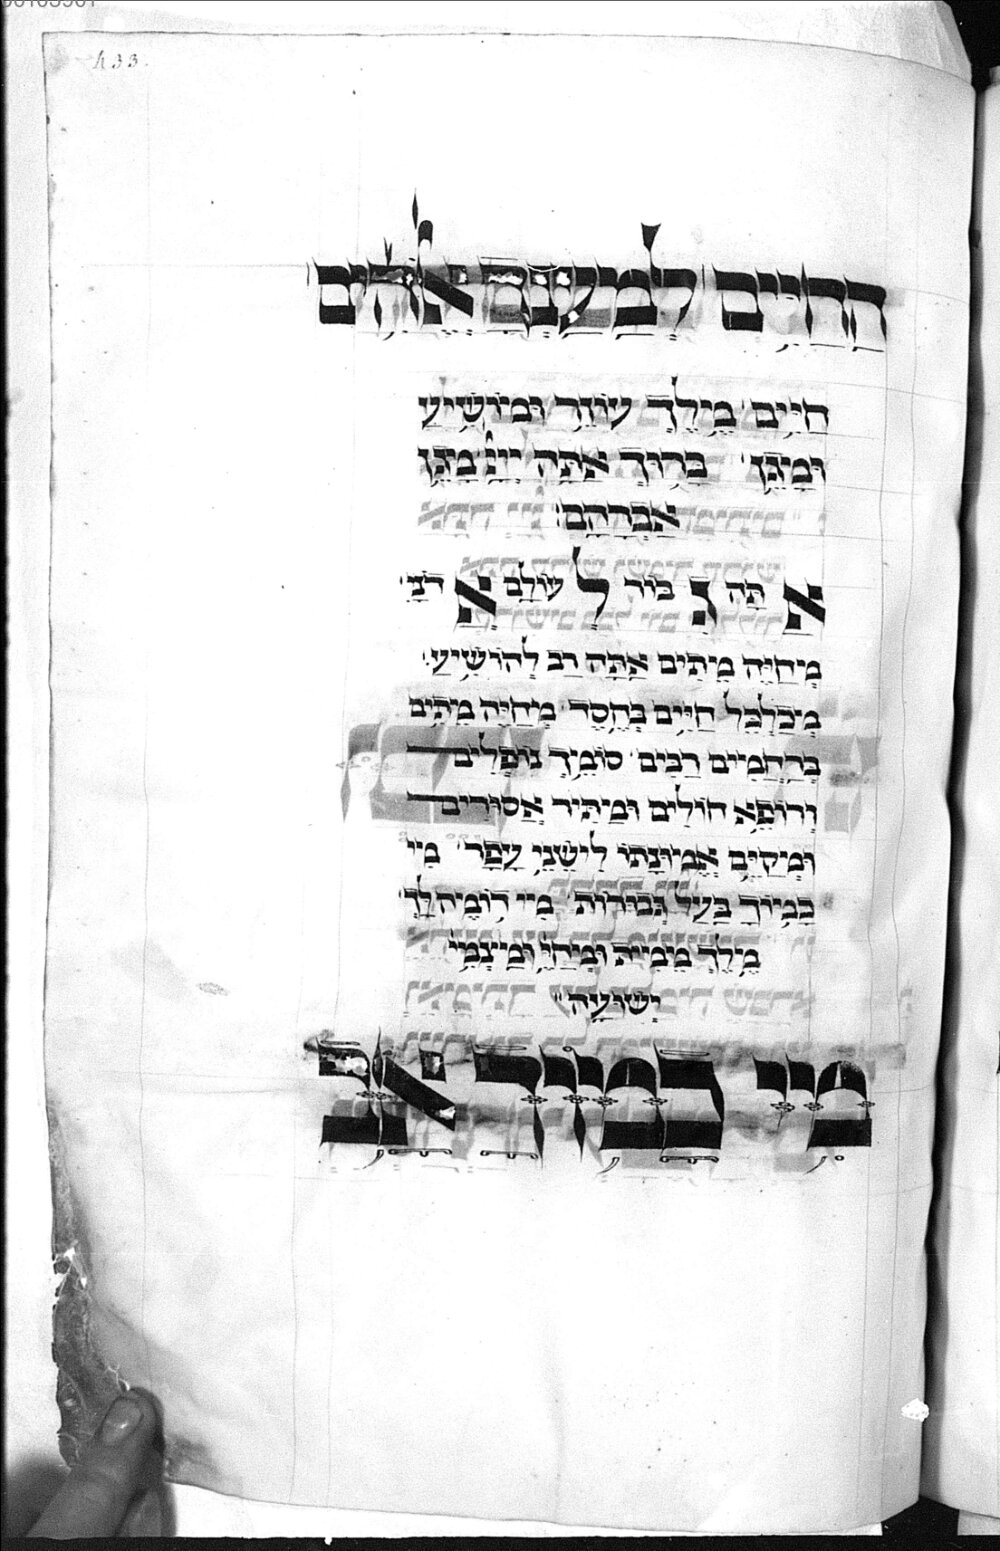 433.
החיים למענך אלהים
חַיִּים מֶלֶךְ עוֹזֵר וּמוֹשִׁיעַ
וּמָגֵן בָּרוּךְ אַתָּה יְיָ מָגֵן
אַבְרָהָם:
אַתָּה גִּבּוֹר לְעוֹלָם אֲדֹנָי
מְחַיֶּה מֵתִים אַתָּה רַב לְהוֹשִׁיעַ.
מְכַלְכֵּל חַיִּים בְּחֶסֶד מְחַיֶּה מֵתִים
בְּרַחֲמִים רַבִּים סוֹמֵךְ נוֹפְלִים
וְרוֹפֵא חוֹלִים וּמַתִּיר אֲסוּרִים
וּמְקַיֵּם אֱמוּנָתוֹ לִישֵׁנֵי עָפָר מִי
כָמוֹךָ בַּעַל גְּבוּרוֹת מִי דוֹמֶה לָּךְ
מֶלֶךְ מֵמִית וּמְחַיֶּה וּמַצְמִיחַ
יְשׁוּעָה
מי כמוך אב